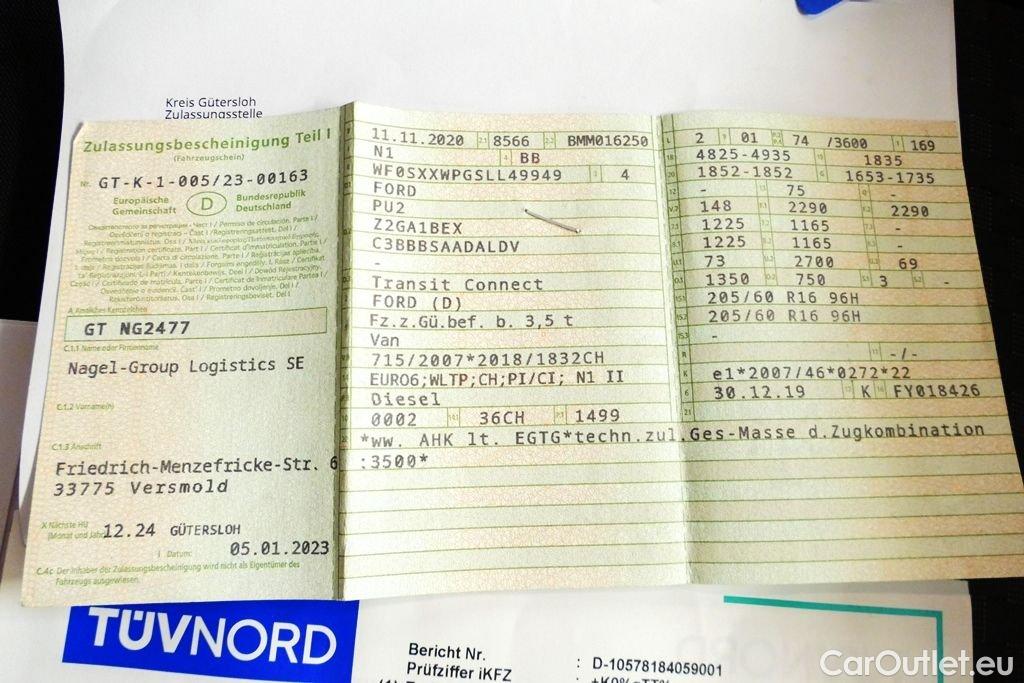 Kreis Gütersloh
Zulassungsstelle
Zulassungsbescheinigung Teil I
(Fahrzeugschein)
Nr. GT-K-1-005/23-00163
Europäische Gemeinschaft
D
Bundesrepublik Deutschland
A Amtliches Kennzeichen
GT NG2477
C.1.1 Name oder Firmenname
Nagel-Group Logistics SE
C.1.2 Vorname(n)
C.1.3 Anschrift
Friedrich-Menzefricke-Str. 6
33775 Versmold
X Nächste HU
(Monat und Jahr) 12.24 GÜTERSLOH
I Datum: 05.01.2023
C.4c Der Inhaber der Zulassungsbescheinigung wird nicht als Eigentümer des
Fahrzeugs ausgewiesen.
11.11.2020 2.1 8566 2.2 BMM016250
N1 BB
WF0SXXWPGSLL49949 3 4
FORD
PU2
Z2GA1BEX
C3BBBSAADALDV
-
Transit Connect
FORD (D)
Fz.z.Gü.bef. b. 3,5 t
Van
715/2007*2018/1832CH
EURO6;WLTP;CH;PI/CI; N1 II
Diesel
0002 14.1 36CH P.1 1499
*ww. AHK lt. EGTG*techn.zul.Ges-Masse d.Zugkombination
:3500*
L 2 9 01 74 /3600 169
18 4825-4935 1835
20 1852-1852 1653-1735
- 75 -
148 2290 2290
1225 1165
1225 1165
73 2700 69
1350 750 3 -
205/60 R16 96H
205/60 R16 96H
-
R 11 -/-
K e1*2007/46*0272*22
6 30.12.19 K FY018426
21
TÜVNORD
Bericht Nr. : D-10578184059001
Prüfziffer iKFZ
CarOutlet.eu